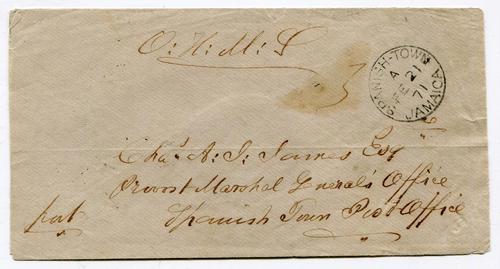 O: H: M: S
SPANISH-TOWN
A
FE 21
71
JAMAICA
Chas A: J: James Esq
Provost Marshal General's Office
Spanish Town Post Office